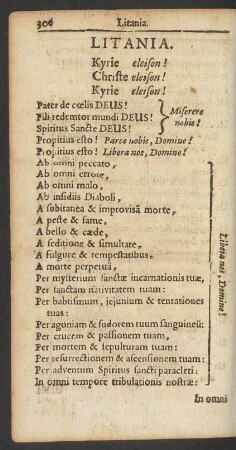 306 Litania.
LITANIA.
Kyrie eleison!
Christe eleison!
Kyrie eleison!
Pater de cœlis DEUS!
Fili redemtor mundi DEUS!
Spiritus Sancte DEUS!
Miserere
nobis!
Propitius esto! Parce nobis, Domine!
Propitius esto! Libera nos, Domine!
Ab omni peccato,
Ab omni errore,
Ab omni malo,
Ab insidiis Diaboli,
A subitanea & improvisâ morte,
A peste & fame,
A bello & cæde,
A seditione & simultate,
A fulgure & tempestatibus,
A morte perpetuâ,
Per mysterium sanctæ incarnationis tuæ,
Per sanctam nativitatem tuam:
Per baptismum, jejunium & tentationes
tuas:
Per agoniam & sudorem tuum sanguineũ:
Per crucem & passionem tuam,
Per mortem & sepulturam tuam:
Per resurrectionem & ascensionem tuam:
Per adventum Spiritus sancti paracleti:
In omni tempore tribulationis nostræ:
Libera nos, Domine!
In omni